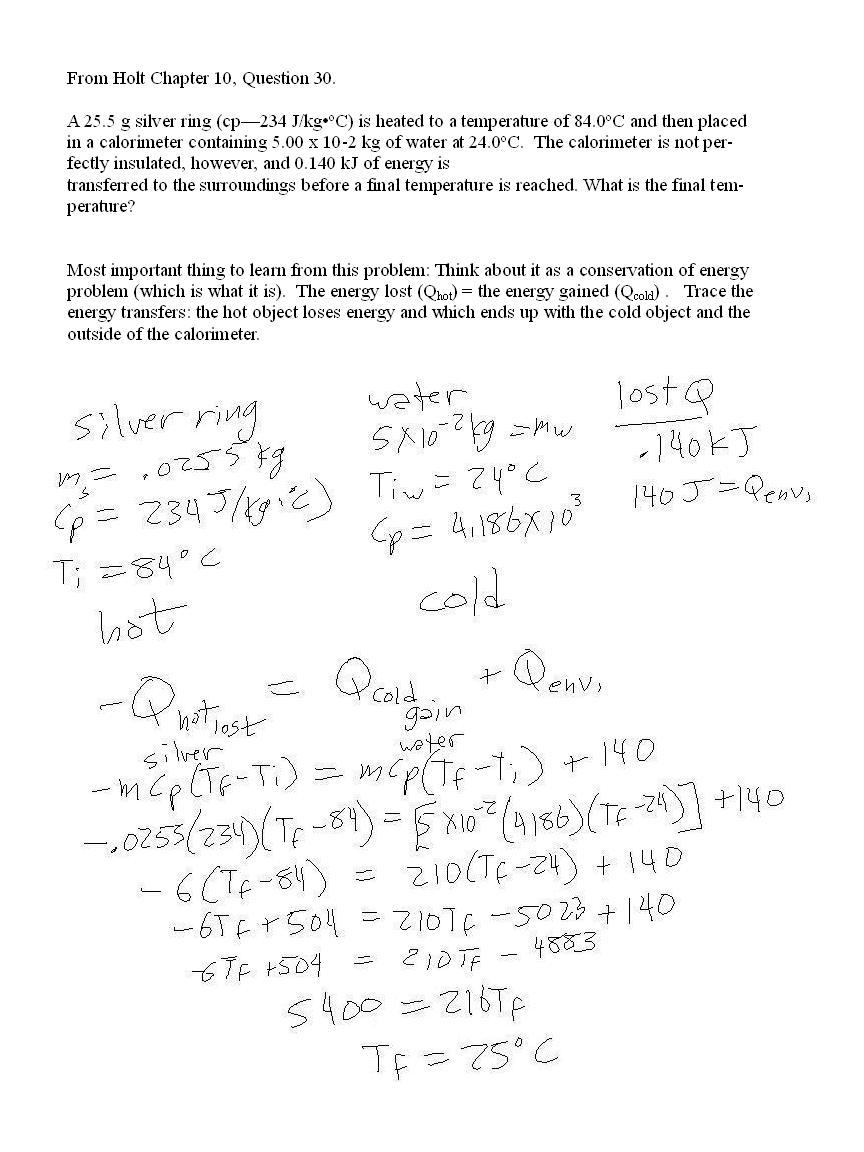 From Holt Chapter 10, Question 30.
A 25.5 g silver ring (cp—234 J/kg•ºC) is heated to a temperature of 84.0ºC and then placed
in a calorimeter containing 5.00 x 10-2 kg of water at 24.0ºC. The calorimeter is not per-
fectly insulated, however, and 0.140 kJ of energy is
transferred to the surroundings before a final temperature is reached. What is the final tem-
perature?
Most important thing to learn from this problem: Think about it as a conservation of energy
problem (which is what it is). The energy lost (Qhot) = the energy gained (Qcold) . Trace the
energy transfers: the hot object loses energy and which ends up with the cold object and the
outside of the calorimeter.
silver ring
ms = .0255 kg
Cp = 234 J/(kg·°C)
Ti = 84° C
hot
water
5X10⁻² kg = mw
Tiw = 24° C
Cp = 4.186X10³
cold
lost Q
.140 kJ
140 J = Qenv.
-Q hot lost = Q cold gain + Qenv.
silver water
-mCp(TF-Ti) = mCp(TF-Ti) + 140
-.0255(234)(TF-84) = [5 X10⁻²(4186)(TF-24)] +140
-6(TF-84) = 210(TF-24) + 140
-6TF + 504 = 210TF - 5023 + 140
-6TF +504 = 210TF - 4883
5400 = 216TF
TF = 25° C